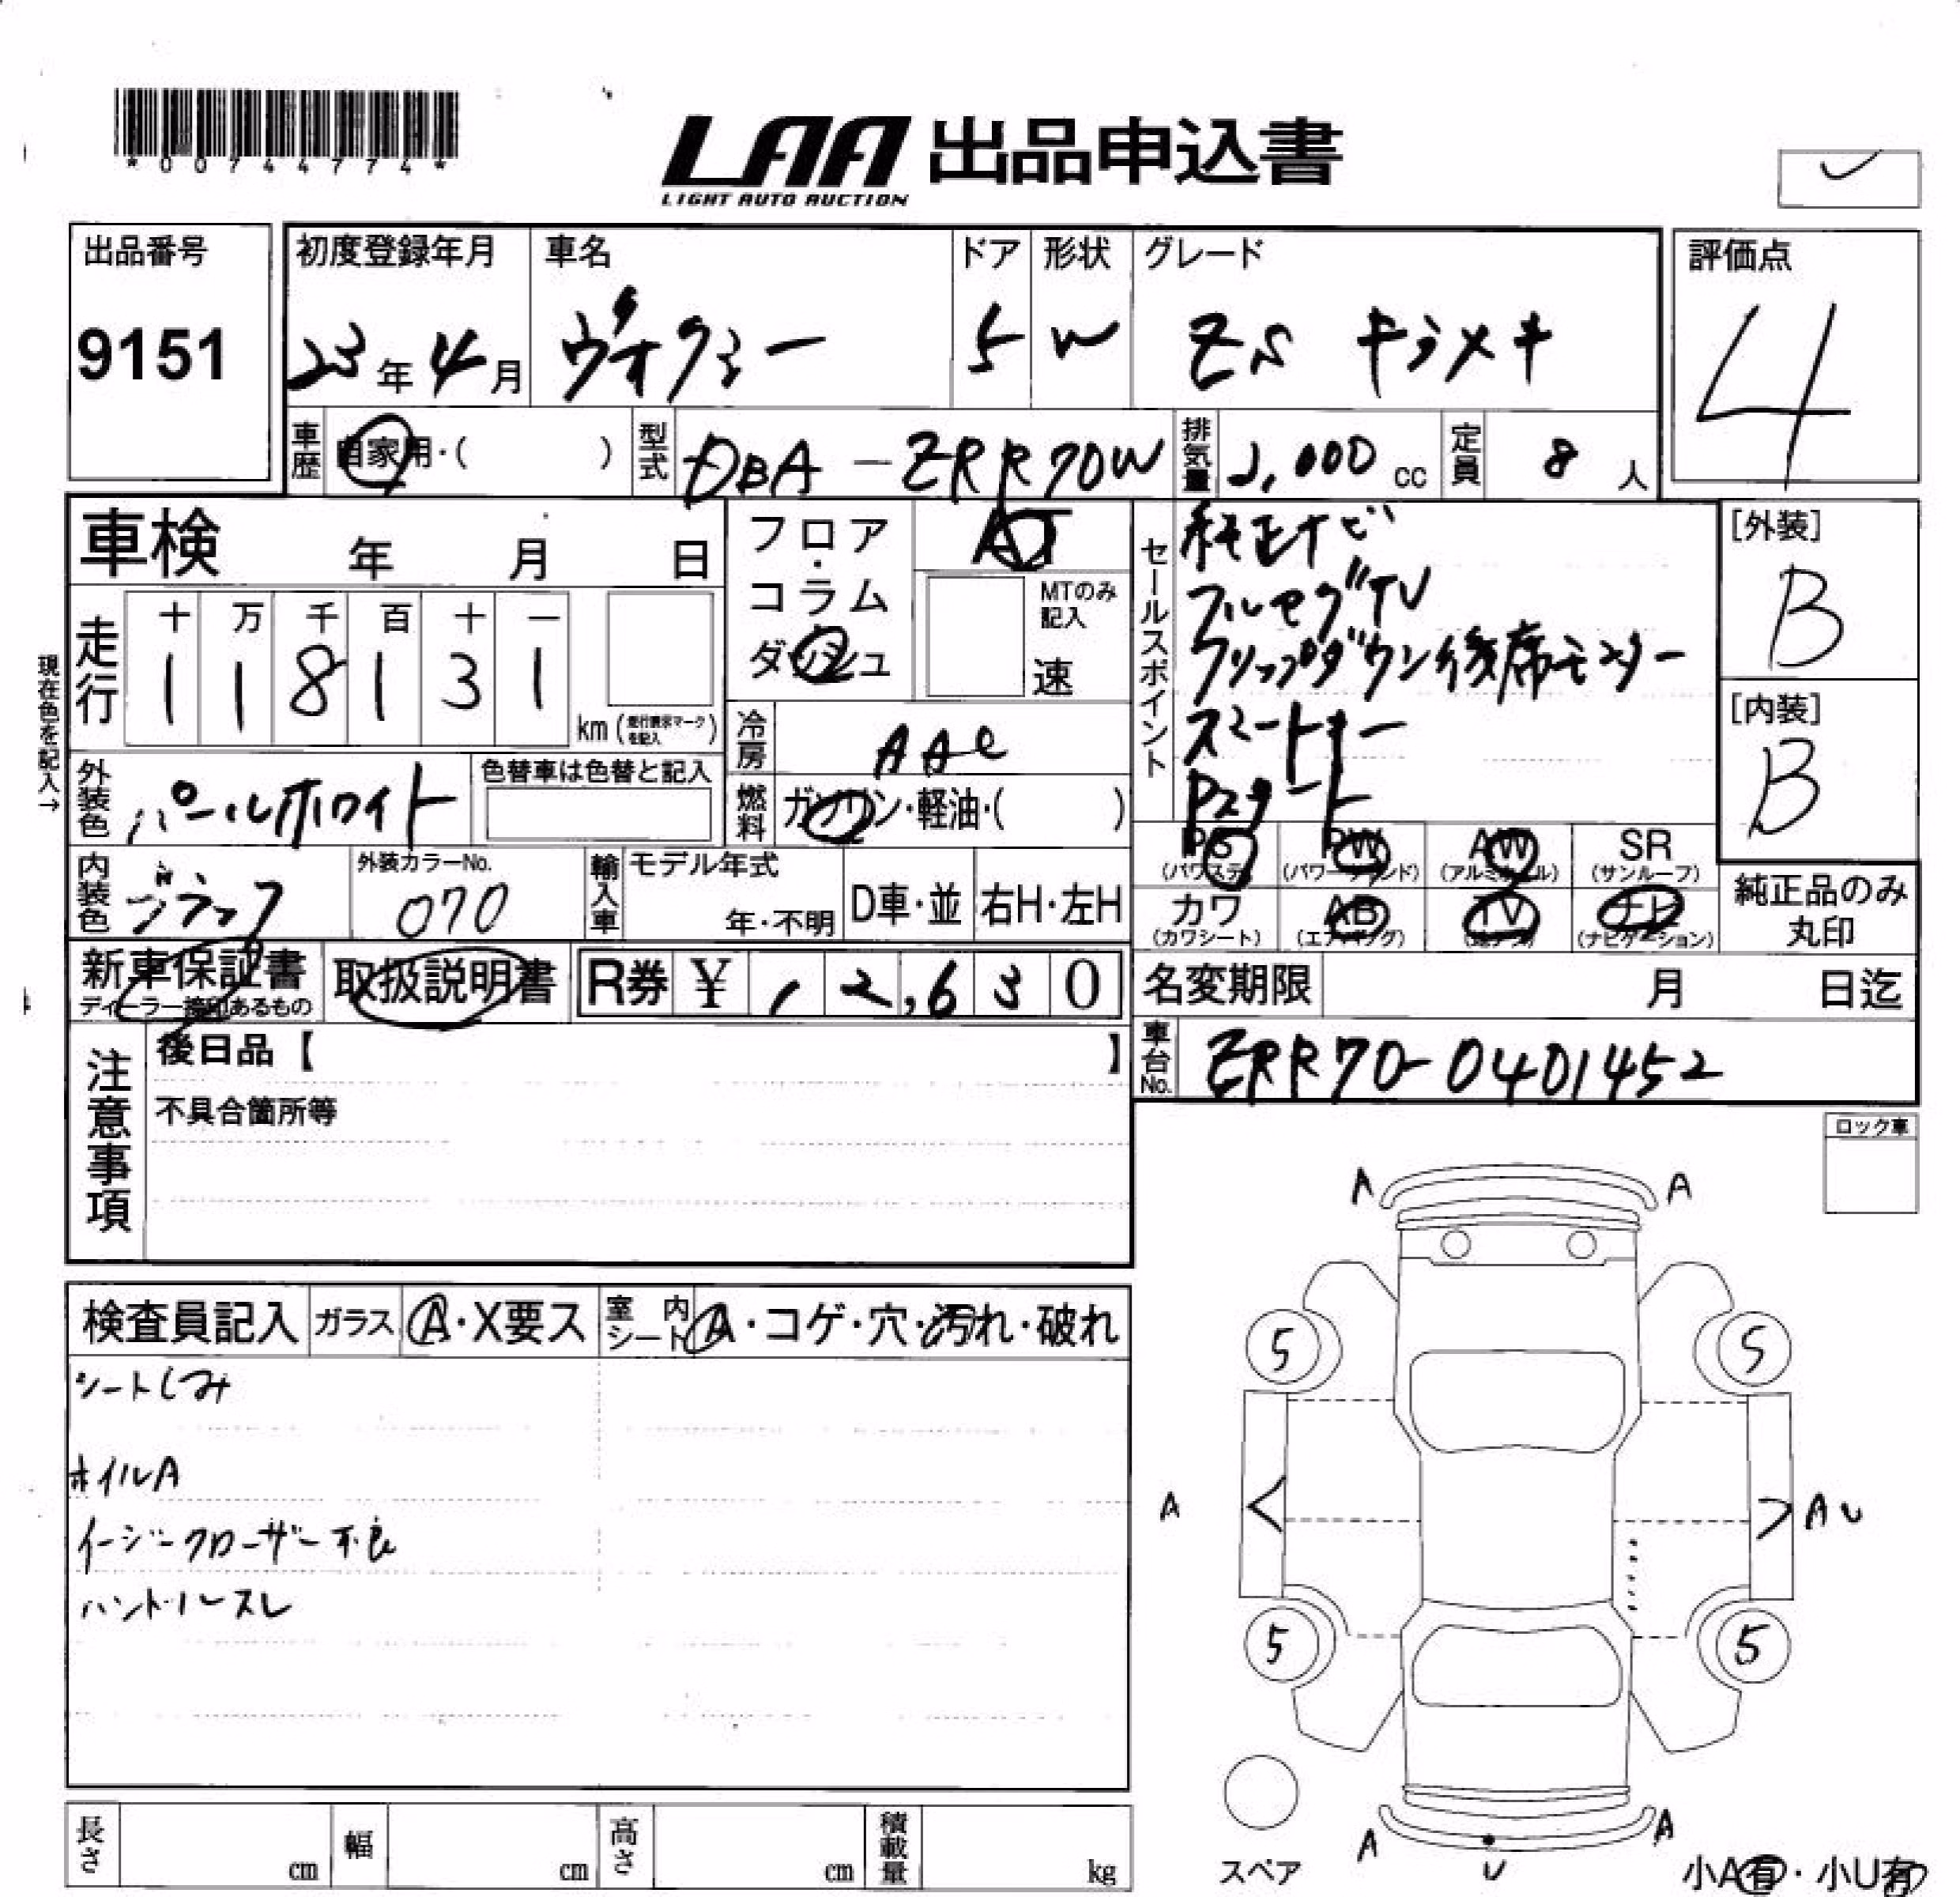 *00744774*
LAA 出品申込書
LIGHT AUTO AUCTION
出品番号
9151
初度登録年月
23年4月
車名
ヴォクシー
ドア
5
形状
W
グレード
ZS キラメキ
評価点
4
車歴
自家用・( )
型式
DBA-ZRR70W
排気量
2,000 cc
定員
8 人
車検 年 月 日
フロア・コラム
ダッシュ
AT
MTのみ記入
速
セールスポイント
純正ナビ
フルセグTV
フリップダウン後席モニター
スマートキー
Pスタート
[外装]
B
[内装]
B
現在色を記入→
走行
十 万 千 百 十 一
1 1 8 1 3 1
km(走行表示マークを記入)
冷房
AAC
燃料
ガソリン・軽油・( )
外装色
パールホワイト
色替車は色替と記入
内装色
ブラック
外装カラーNo.
070
輸入車
モデル年式
年・不明
D車・並
右H・左H
PS (パワステ)
PW (パワーウインド)
AW (アルミホイール)
SR (サンルーフ)
カワ (カワシート)
AB (エアバッグ)
TV
ナビ (ナビゲーション)
純正品のみ丸印
新車保証書
ディーラー捺印あるもの
取扱説明書
R券 ¥ 12,630
名変期限 月 日迄
車台No.
ZRR70-0401452
注意事項
後日品【 】
不具合箇所等
ロック車
検査員記入
ガラス
A・X要ス
室内シート
A・コゲ・穴・汚れ・破れ
シートしみ
ホイルA
イージークローザー不良
ハンドルスレ
A A
5 5
A A U
5 5
A U A
スペア
小A有・小U有
長さ cm
幅 cm
高さ cm
積載量 kg